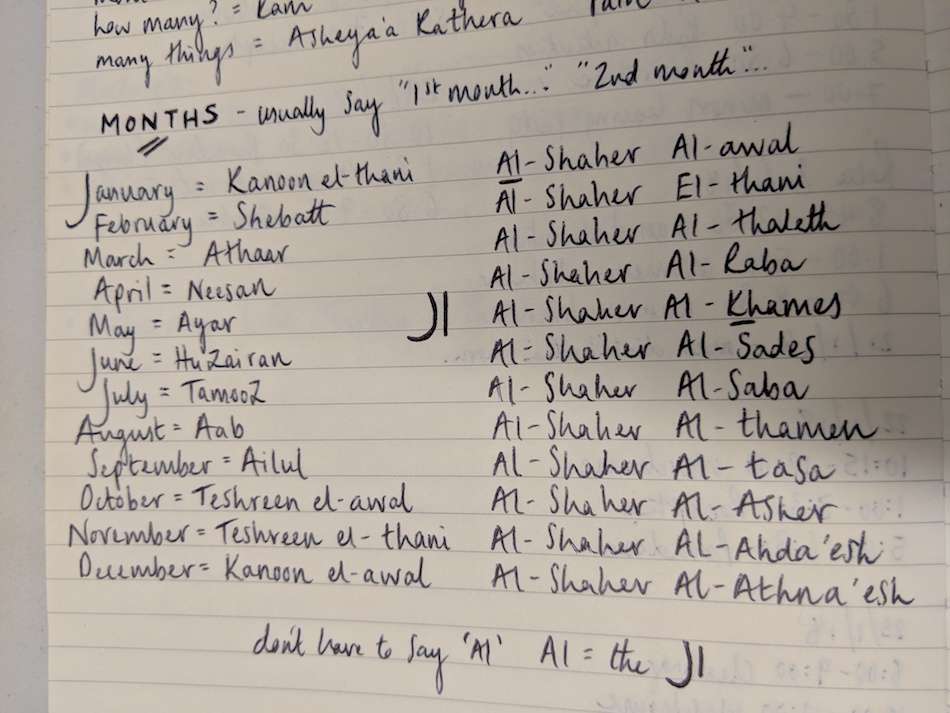 how many? = Kam
many things = Asheya'a Kathera
MONTHS - usually say "1st month..." "2nd month"...
January = Kanoon el-thani Al-Shaher Al-awal
February = Shebatt Al-Shaher El-thani
March = Athaar Al-Shaher Al-thaleth
April = Neesan Al-Shaher Al-Raba
May = Ayar ال Al-Shaher Al-Khames
June = Huzairan Al-Shaher Al-Sades
July = Tamooz Al-Shaher Al-Saba
August = Aab Al-Shaher Al-thamen
September = Ailul Al-Shaher Al-tasa
October = Teshreen el-awal Al-Shaher Al-Asher
November = Teshreen el-thani Al-Shaher Al-Ahda'esh
December = Kanoon el-awal Al-Shaher Al-Athna'esh
don't have to say 'Al' Al = the ال